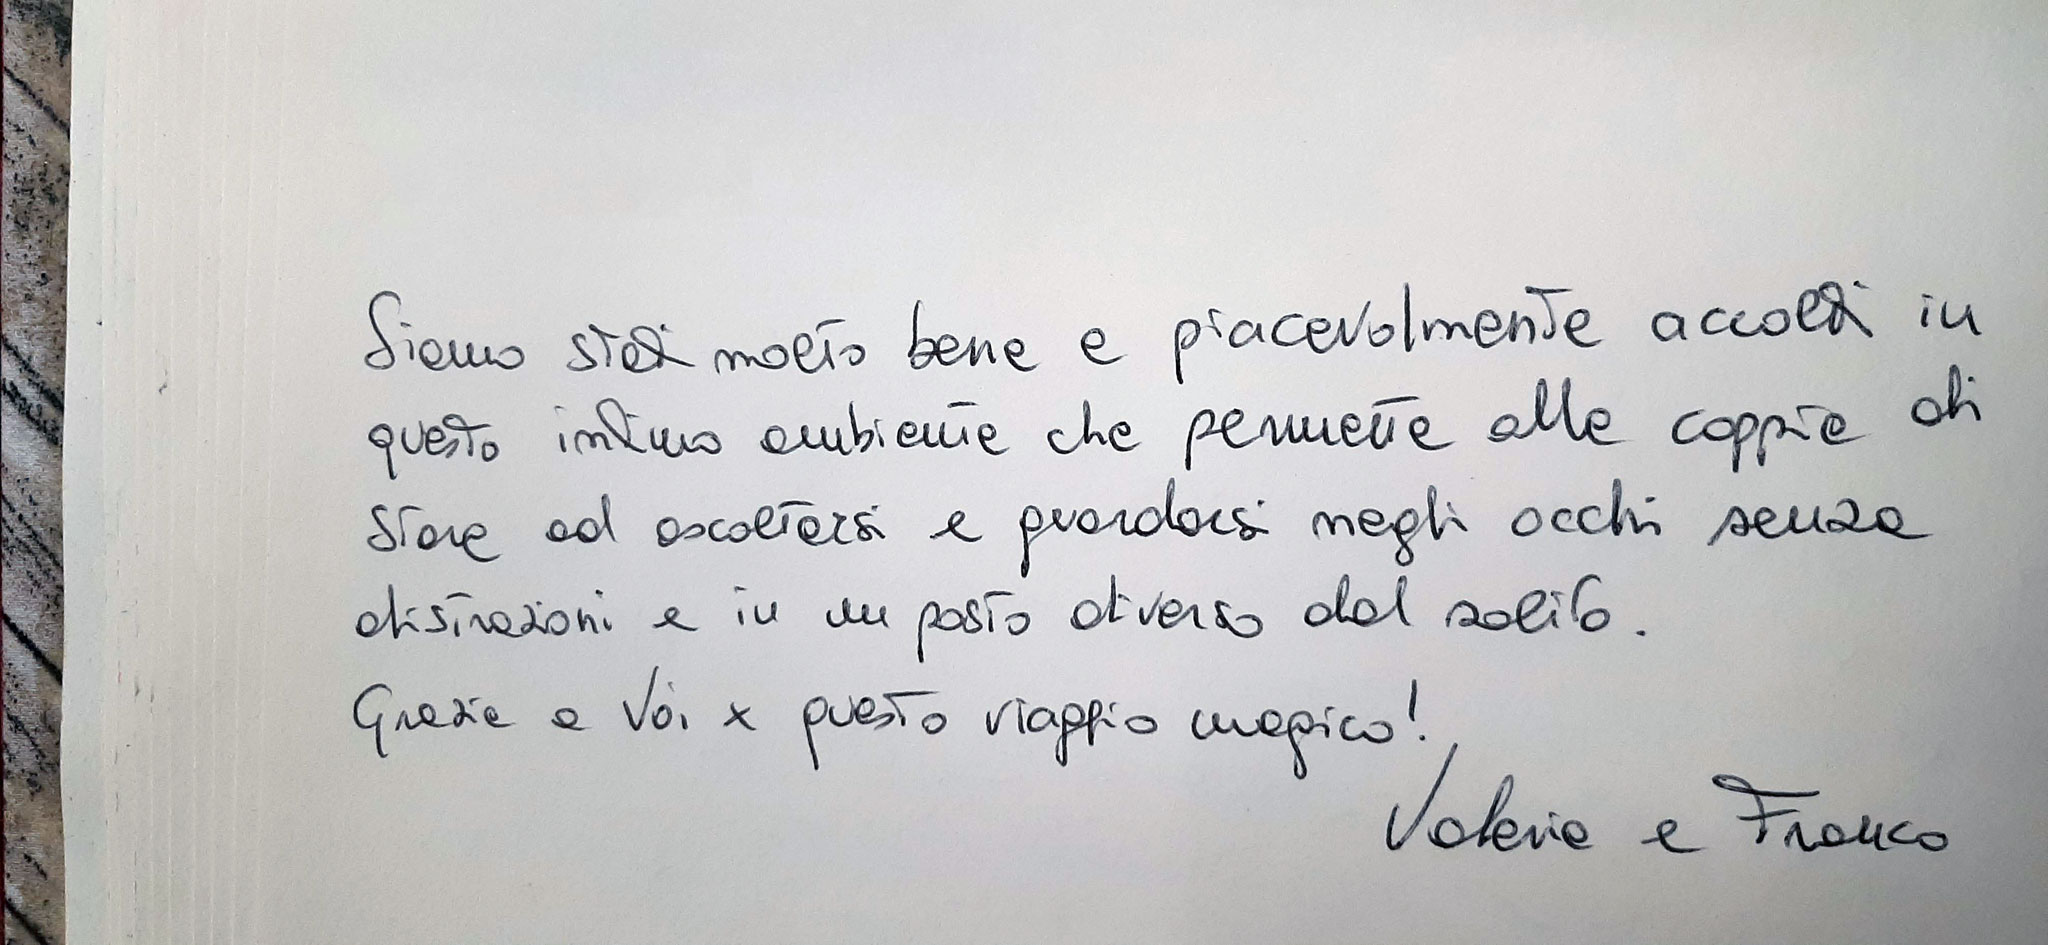 Siamo stati molto bene e piacevolmente accolti in
questo intimo ambiente che permette alle coppie di
stare ad ascoltarsi e guardarsi negli occhi senza
distrazioni e in un posto diverso dal solito.
Grazie a Voi x questo viaggio magico!
Valeria e Franco